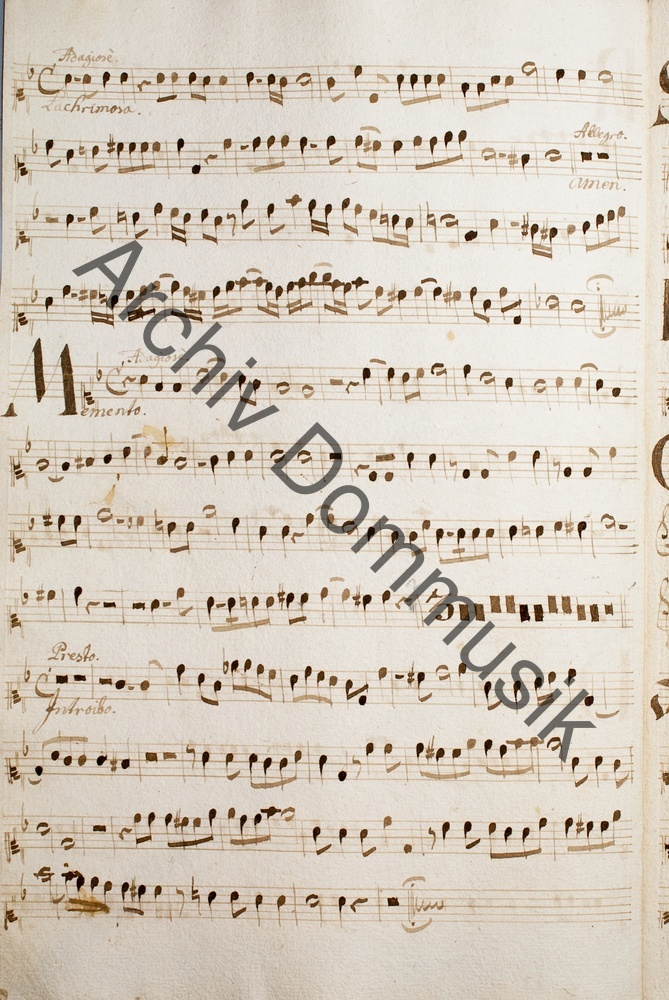 Adagiosè.
Lachrimosa.
Allegro.
Amen.
Adagiosè.
Memento.
Presto.
Introibo.
Archiv Dommusik